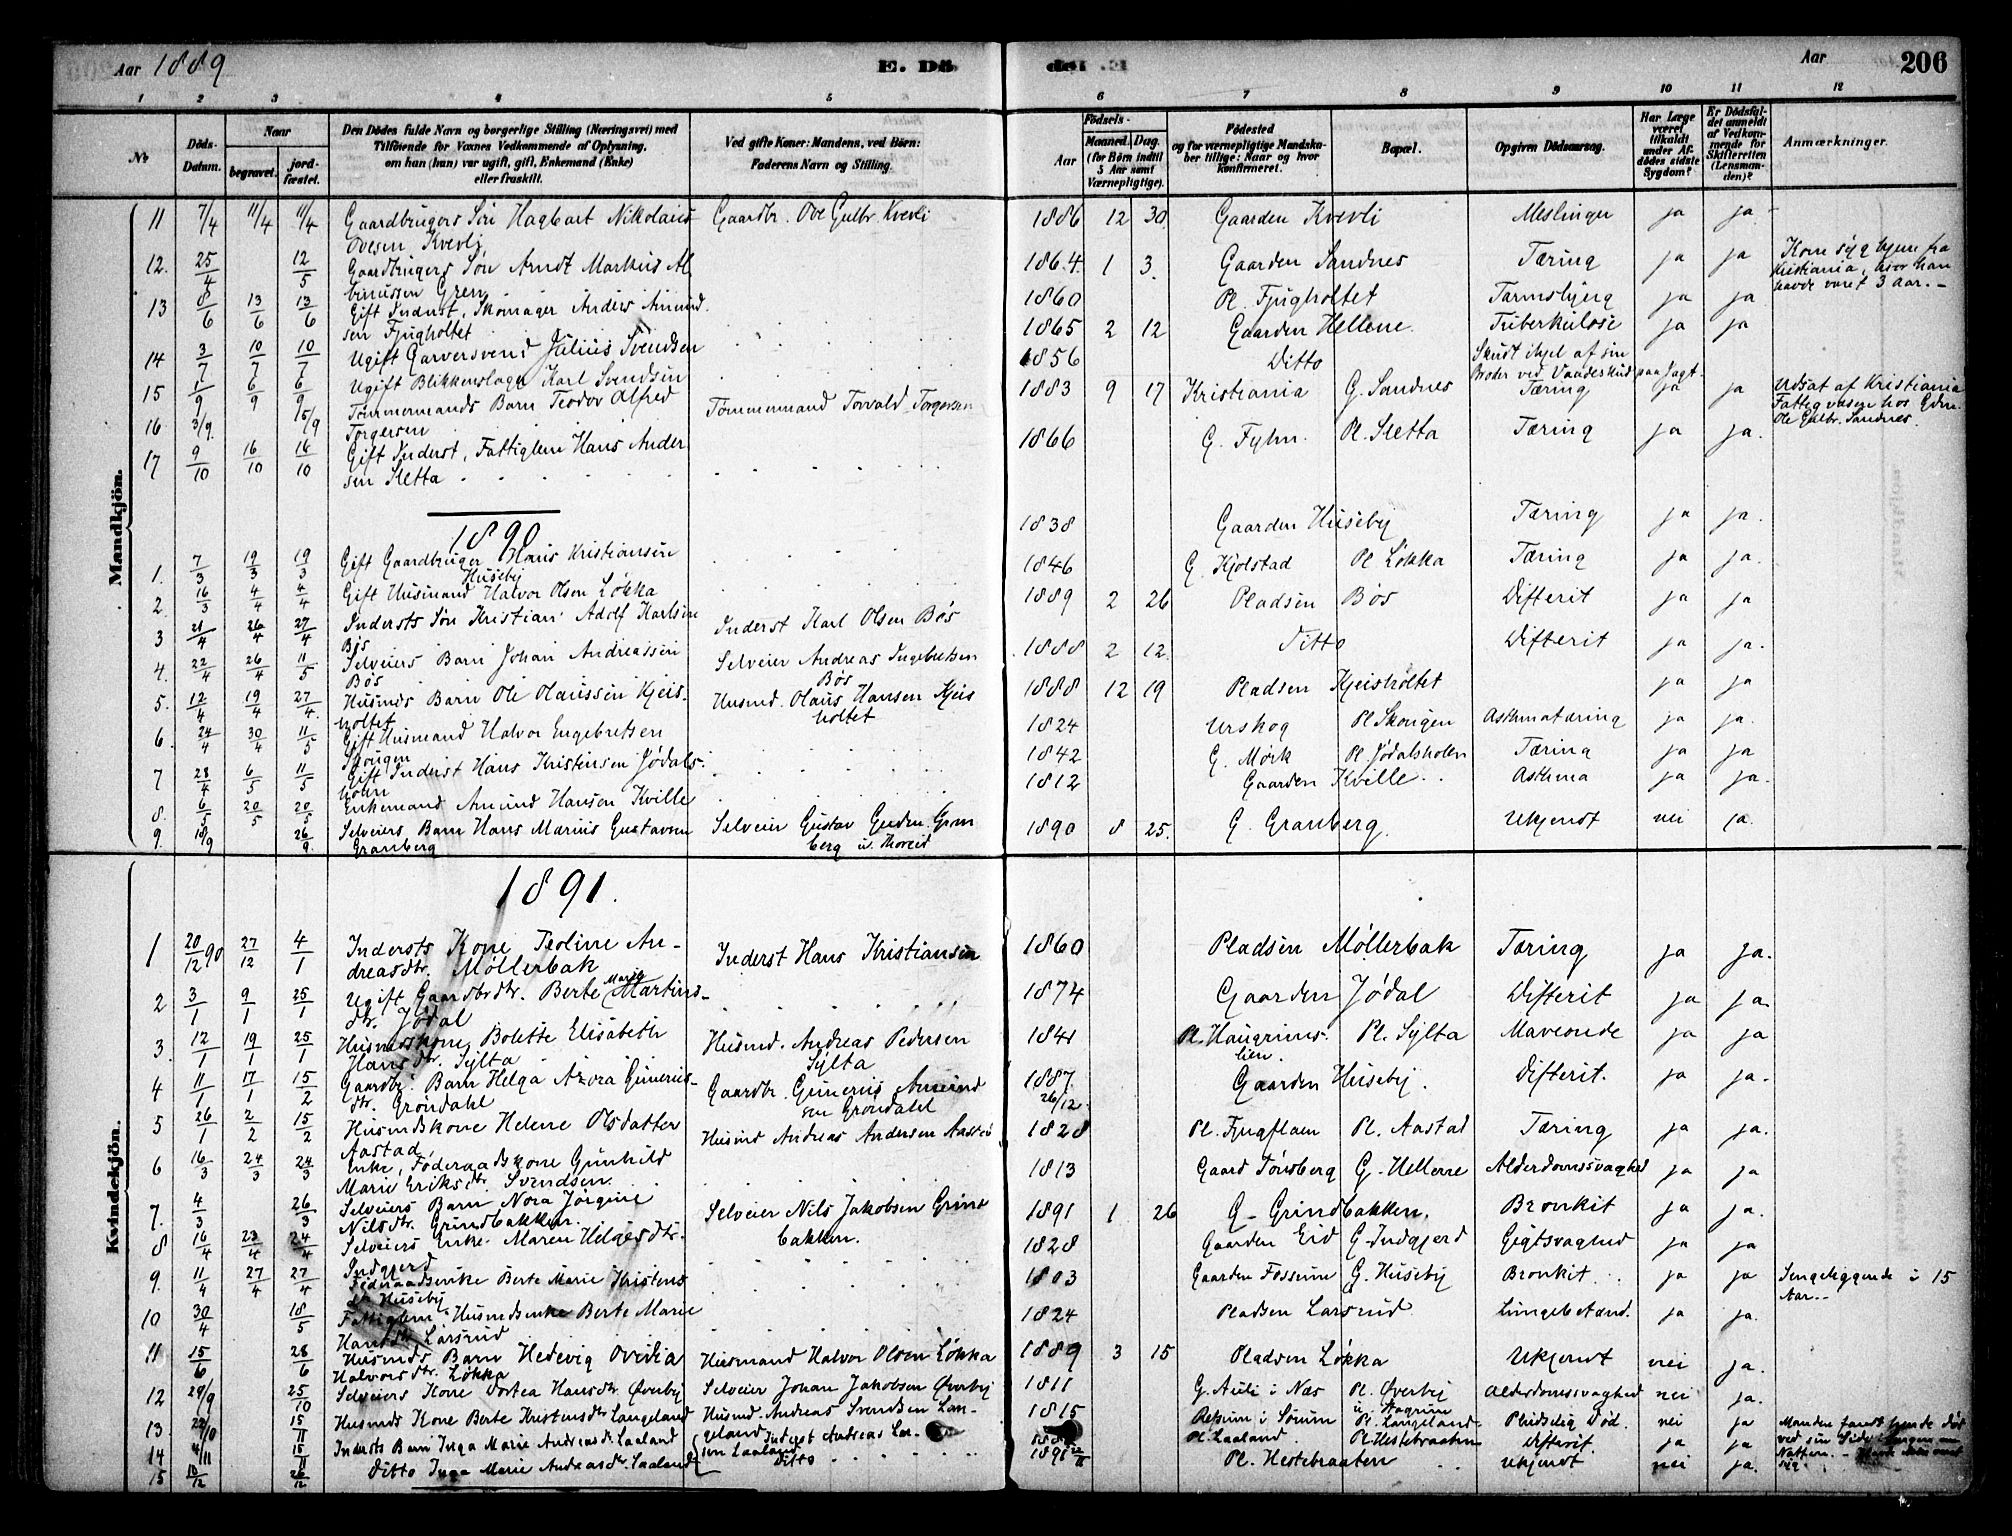 Aar 1889 E. Dö de. E. Aar 206
1 2 3 4 5 6 7 8 9 10 11 12
No. Döds-Datum. Naar begravet. jordfæstet. Den Dödes fulde Navn og borgerlige Stilling (Næringsvei) med Tilföiende for Voxnes Vedkommende af Oplysning, om han (hun) var ugift, gift, Enkemand (Enke) eller fraskilt. Ved gifte Koner: Mandens, ved Börn: Faderens Navn og Stilling. Födsels- Aar Maaned. Dag. (for Börn indtil 5 Aar samt Værnepligtige). Födested og for værnepligtige Mandskaber tillige: Naar og hvor konfirmeret. Bopæl. Opgiven Dödsaarsag. Har Læge været tilkaldt under Afdödes sidste Sygdom? Er Dödsfaldet anmeldt af Vedkommende for Skifteretten (Lensmanden)? Anmærkninger.
Mandkjön.
11 7/4 11/4 11/4 Gaardbrugers Søn Hagbart Nikolaius Ovesen Kvevli Gaardbr. Ove Gulbr. Kvevli 1886 12 30 Gaarden Kvevli Meslinger ja ja
12. 25/4 12/5 Gaardbrugers Søn Arndt Markus Albinussen Gren 1864. 1 3. Gaarden Sandnes Tæring ja ja Kom syg hjem fra Kristiania, hvor han havde været 3 Aar.
13 8/6 13/6 13/6 Gift Inderst, Skomager Anders Amundsen Fjugholtet 1860 Pl. Fjugholtet Tarmsbjerg ja ja
14 3/7 10/7 10/7 Ugift Garversvend Julius Svendsen 1865 2 12 Gaarden Hellene. Tuberkulose ja ja
15 1/9 6/9 6/9 Ugift Blikkenslager Karl Svendsen 1856 Ditto Skudt ihjel af sin Broder ved Vaadeskud paa Jagt.
16 3/9. 15/9 Tømmermands Barn Teodor Alfred Torgersen Tømmermand Torvald Torgersen 1883 9 17 Kristiania G. Sandnes Tæring ja ja Udsat af Kristiania Fattigvæsen hos Gdm. Ole Gulbr. Sandnes.
17 9/10 16/10 16/10 Gift Inderst, Fattiglem Hans Andersen Sletta 1866 G. Fyhn. Pl. Sletta Tæring ja ja.
1890
1. 7/3 19/3 19/3 Gift Gaardbruger Hans Kristiansen Huseby 1838 Gaarden Huseby Tæring ja ja.
2. 16/3 4/4 4/4 Gift Husmand Halvor Olsen Løkka 1846 G. Kjølstad Pl. Løkka Tæring ja ja.
3 21/4 26/4 27/4 Indersts Søn Kristian Adolf Karlsen Bøs Inderst Karl Olsen Bøs 1889 2 26 Pladsen Bøs Difterit ja ja
4. 22/4 26/4 11/5 Selveiers Barn Johan Andreassen Bøs Selveier Andreas Ingebretsen Bøs 1888 2 12. Ditto Difterit ja ja.
5. 12/4 19/4 27/4. Husmds Barn Ole Olaussen Kjeisholtet Husmd. Olaus Hansen Kjeisholtet 1888 12 19 Pladsen Kjeisholtet ja ja
6. 24/4 30/4 11/5 Gift Husmand Halvor Engebretsen Skougen 1824 Urskog Pl Skougen Asthmatæring ja ja.
7 28/4 6/5 11/5 Gift Inderst Hans Kristensen Jødalsholm 1842 G. Mørk Pl. Jødalsholm Tæring ja ja
8. 6/5 20/5 20/5 Enkemand Amund Hansen Kville 1812 Gaarden Kville Asthma ja ja.
9. 18/9 26/9. Selveiers Barn Hans Marius Gustavsen Granberg Selveier Gustav Gudm. Granberg u. Thoreid 1890 8 25. G. Granberg. Ukjendt nei ja.
1891.
Kvindekjön.
1 20/12 90 27/12 4/1 Indersts Kone Teoline Andreasdtr. Møllerbak Inderst Hans Kristiansen 1860 Pladsen Møllerbak Tæring ja ja.
2 3/1 9/1 25/1 Ugift Gaardbrdtr. Berte Marie Martinsdtr. Jødal 1874 Gaarden Jødal Difterit ja ja
3. 12/1 19/1 25/1 Husmdskone Bolette Elisabeth Hansdtr. Sylta Husmd. Andreas Pedersen Sylta 1841 Pl. Haugrimslien. Pl. Sylta Mavesonde ja ja
4 11/1 17/1 15/2 Gaardbr. Barn Helga Azora Guneriusdtr. Grøndahl Gaardbr. Gunerius Amundsen Grøndahl 1887. 26/12. Gaarden Huseby. Difterit. ja ja
5 26/1 2/2 15/2 Husmdskone Helene Olsdatter Aastad Husmd Andreas Andersen Aastad 1828 Pl. Fjugflaen Pl. Aastad Tæring ja ja.
6 16/3 24/3 24/3 Enke, Føderaadskone Gunhild Marie Eriksdtr. Svendsen 1813 Gaard Tønsberg G. Hellerne Alderdomssvaghed ja ja
7. 4/3 26/3 Selveiers Barn Nora Jørgine Nilsdtr. Grindbakken. Selveier Nils Jakobsen Grindbakken. 1891 1 26 G. Grindbakken. Bronkit ja ja.
8 16/4 23/4 24/4 Selveiers Enke Maren Helgesdtr. Indgjerd 1828 Gaarden Eid G. Indgjerd Gigtsvaghed ja ja
9. 11/4 27/4 27/4 Føderaadsenke Berte Marie Kristensdtr Huseby 1803 Gaarden Fossum G. Huseby Bronkit ja ja Sengeliggende i 15 Aar.
10 30/4 18/5 Fattiglem, Husmdsenke Berte Marie Hansdtr Larsrud 1824 Pladsen Larsrud Lungebetænd. ja ja
11 15/6 28/6 Husmds Barn Hedevig Ovidia Halvorsdtr. Løkka Husmand Halvor Olsen Løkka 1889 3 15 Pladsen Løkka Ukjendt nei ja.
12 29/9 25/10 Selveiers Kone Dortea Hansdtr. Øverby Selveier Johan Jakobsen Øverby 1811 G. Auli i Næs Pl. Øverby Alderdomssvaghed nei ja.
13. 22/10 15/11 Husmds Kone Berte Kristensdtr Langeland Husmd. Andreas Svendsen Langeland 1815 i Sørum Pl. Langeland Pludselig Død. nei ja Manden fandt hende død ved sin Side
14 4/11 15/11 Indersts Barn Inga Marie Andreasdtr. Laaland Inderst Andreas Larsen Laaland Pl. Laaland Pl. Hestebraaten Difterit. ja ja
15 10/12 26/12 Ditto Inga Marie Andreasdtr. Laaland Ditto 1891 Pl. Hestebraaten Ukjendt nei ja.